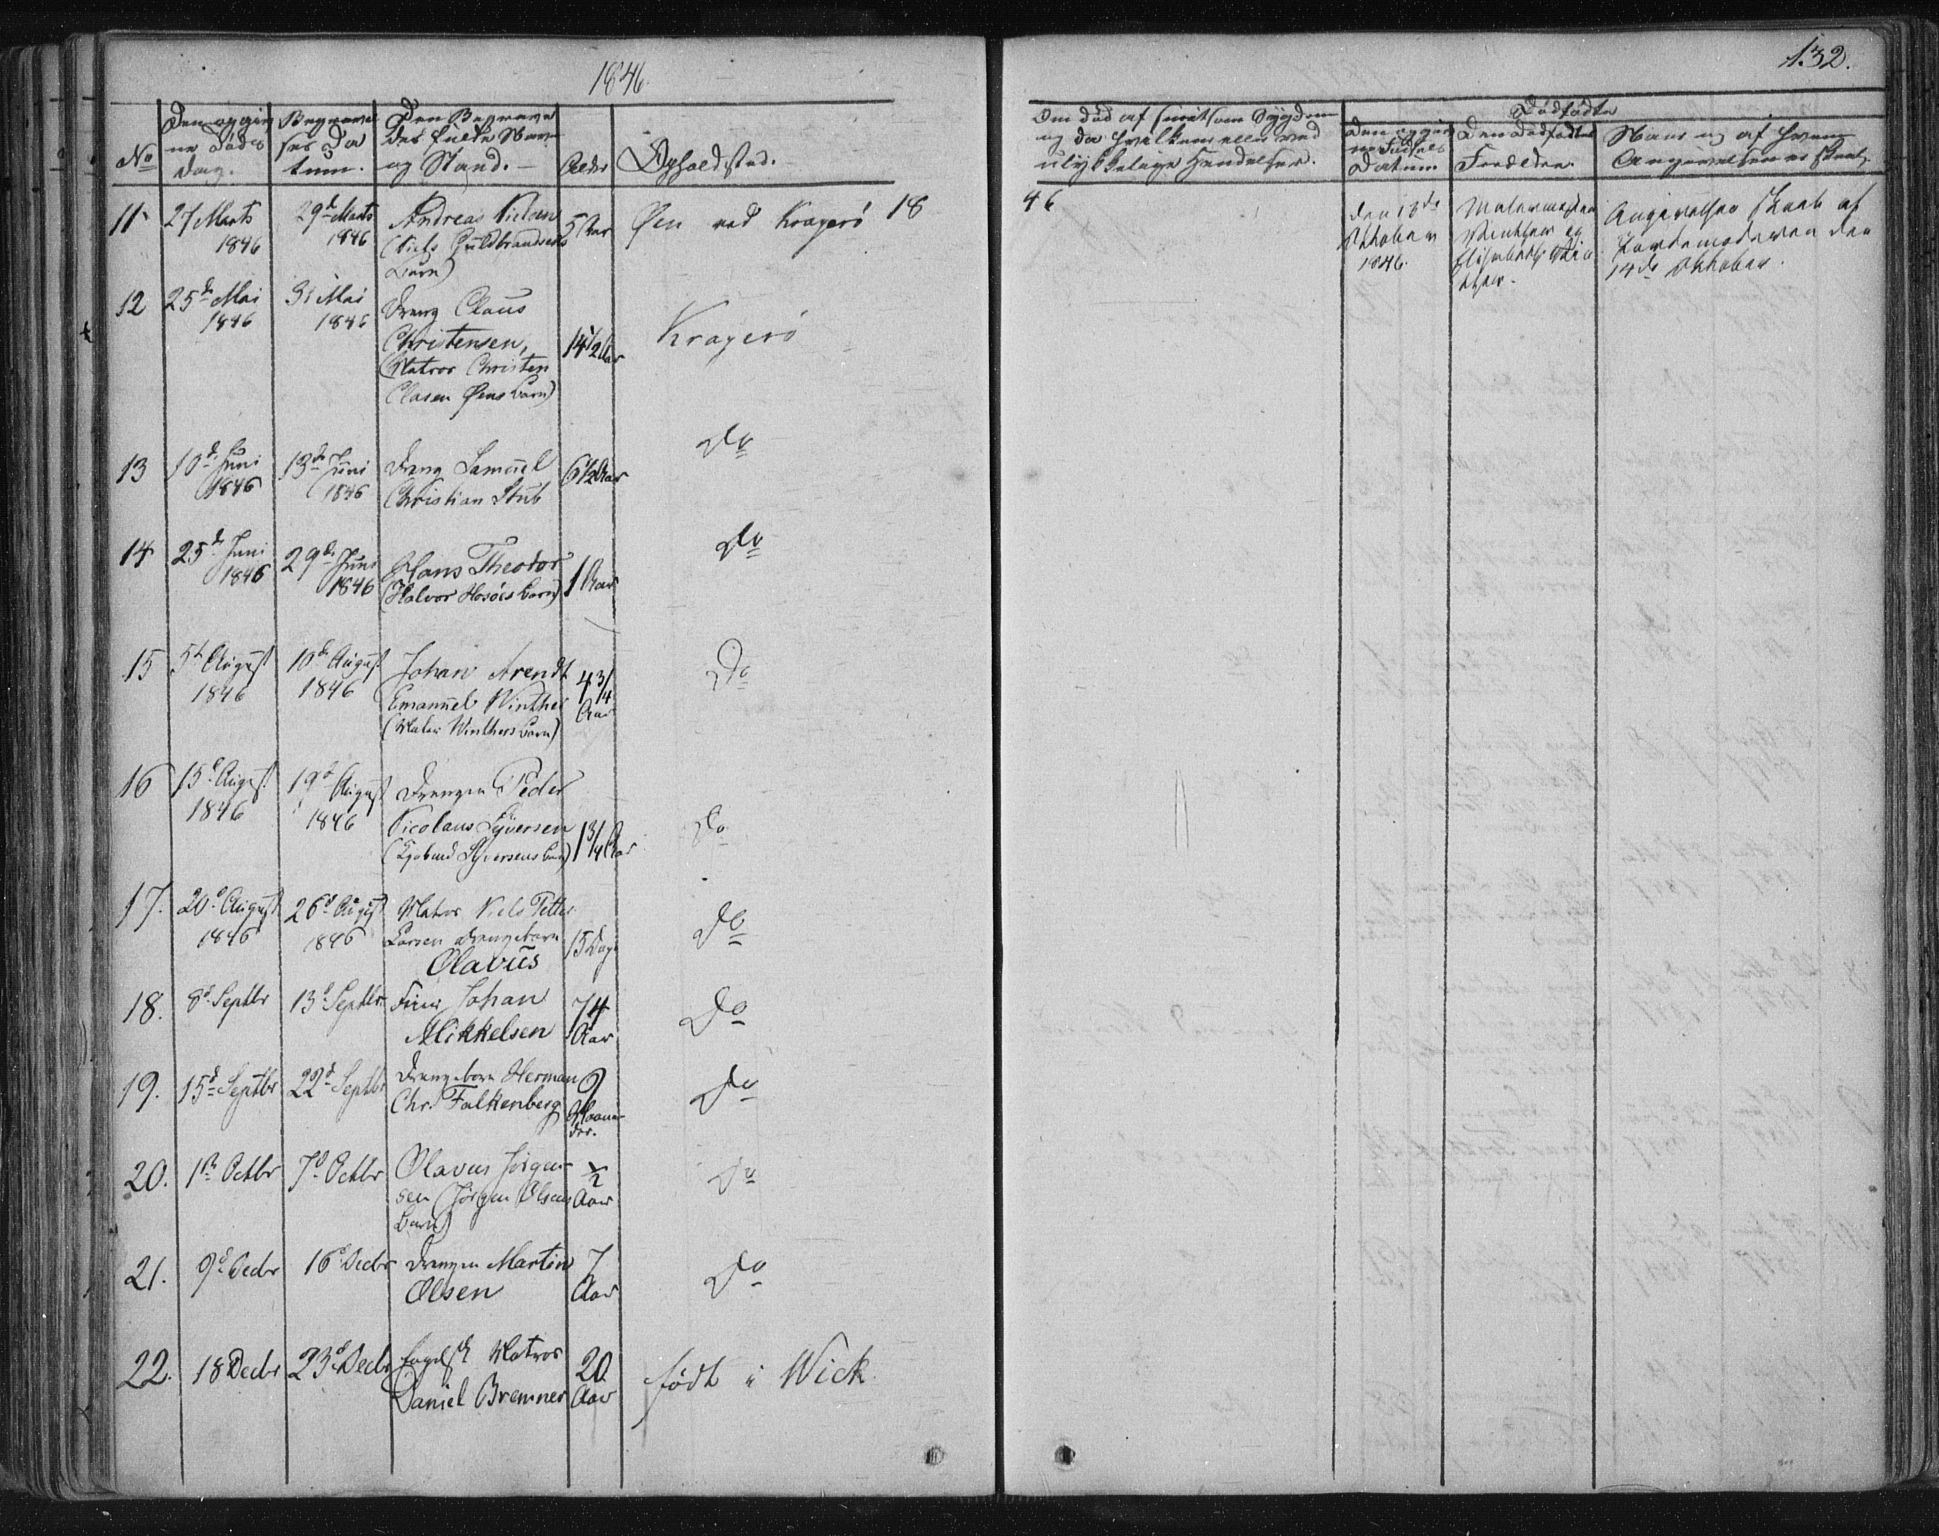 1846.
132.
No
Den opgivne Døds Dag.
Begravelses Datum.
Den Begravedes fulde Navn og Stand.
Alder
Opholdssted.
Om død af smitsom Sygdom og da hvilken eller ved ulykkelige Hændelser.
Dødfødte
Den opgivne Fødsels Datum
Den Dødfødtes Forældre.
Naar og af hvem Angivelsen er skeet.
11. 27 Marts 1846
29d Marts 1846
Andreas Nielsen
(Niels Guldbrandsens
Barn)
5 Aar
Øen ved Kragerø
18
46
den 13de
Oktober
1846.
Malermester
Winther og
Elisabeth
Angivelsen skeet af
Jordemoderen den
14de Oktober.
12 25d Mai 1846
31 Mai 1846
Dreng Claus
Christensen,
(Matros Christen
Clasen Øens Barn)
14 1/2 Aar
Kragerø
13 10d Juni 1846
13d Juni 1846
Dreng Samuel
Christian Stub
6 1/2 Aar
Do
14 25d Juni 1846
29d Juni 1846
Hans Theodor
(Halvor Barn)
1 Aar
Do
15 5d August 1846
10d August 1846
Johan Arendt
Emanuel Winther
(Maler Winthers Barn)
4 3/4 Aar
Do
16 15d August 1846
19d August 1846
Drengen Peder
Nicolaus Syversen
(Syversens Barn)
1 3/4 Aar
Do
17. 20d August 1846
26d August 1846
Matros Niels Petter
Larsen Drengebarn
Olavus
15 Dage
Do
18. 8d Septbr
13d Septbr
Johan
Mikkelsen
74 Aar
Do
19. 15d Septbr
22d Septbr
Drengebarn Herman
Chr. Falkenberg
9 Maaneder.
Do
20. 1ste Octbr
7d Octbr
Olavus Jørgen-
sen (Jørgen Olsens
Barn)
1/2 Aar
Do
21. 9d Decbr
16d Decbr
Drengen Martin
Olsen
7 Aar
Do
22. 18 Decbr
23d Decbr
Engelsk Matros
Daniel Bremner
20 Aar
født i Wick